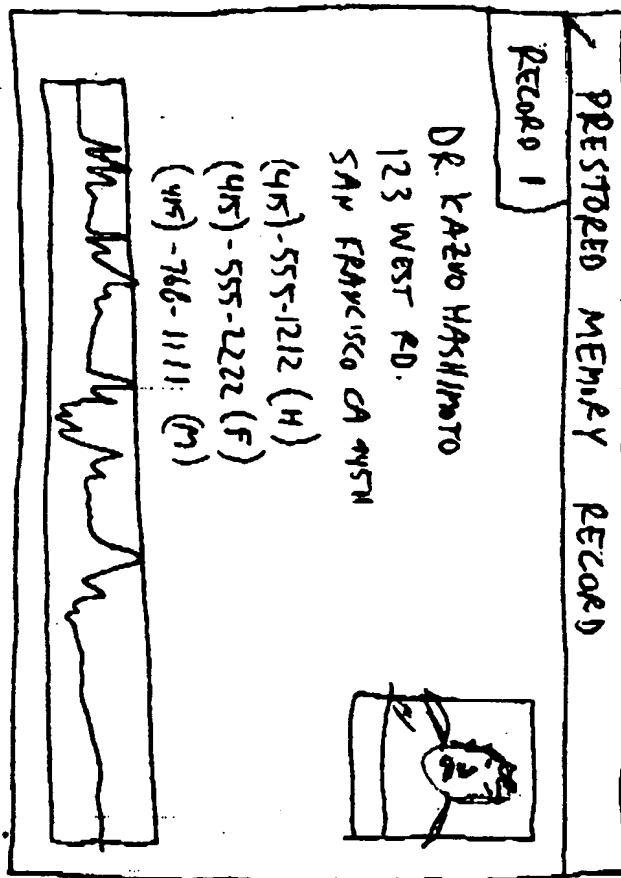 PRESTORED MEMORY RECORD
RECORD 1
DR. KAZUO HASHIMOTO
123 WEST RD.
SAN FRANCISCO CA
(415)-555-1212 (H)
(415)-555-2222 (F)
(415)-766-1111 (M)